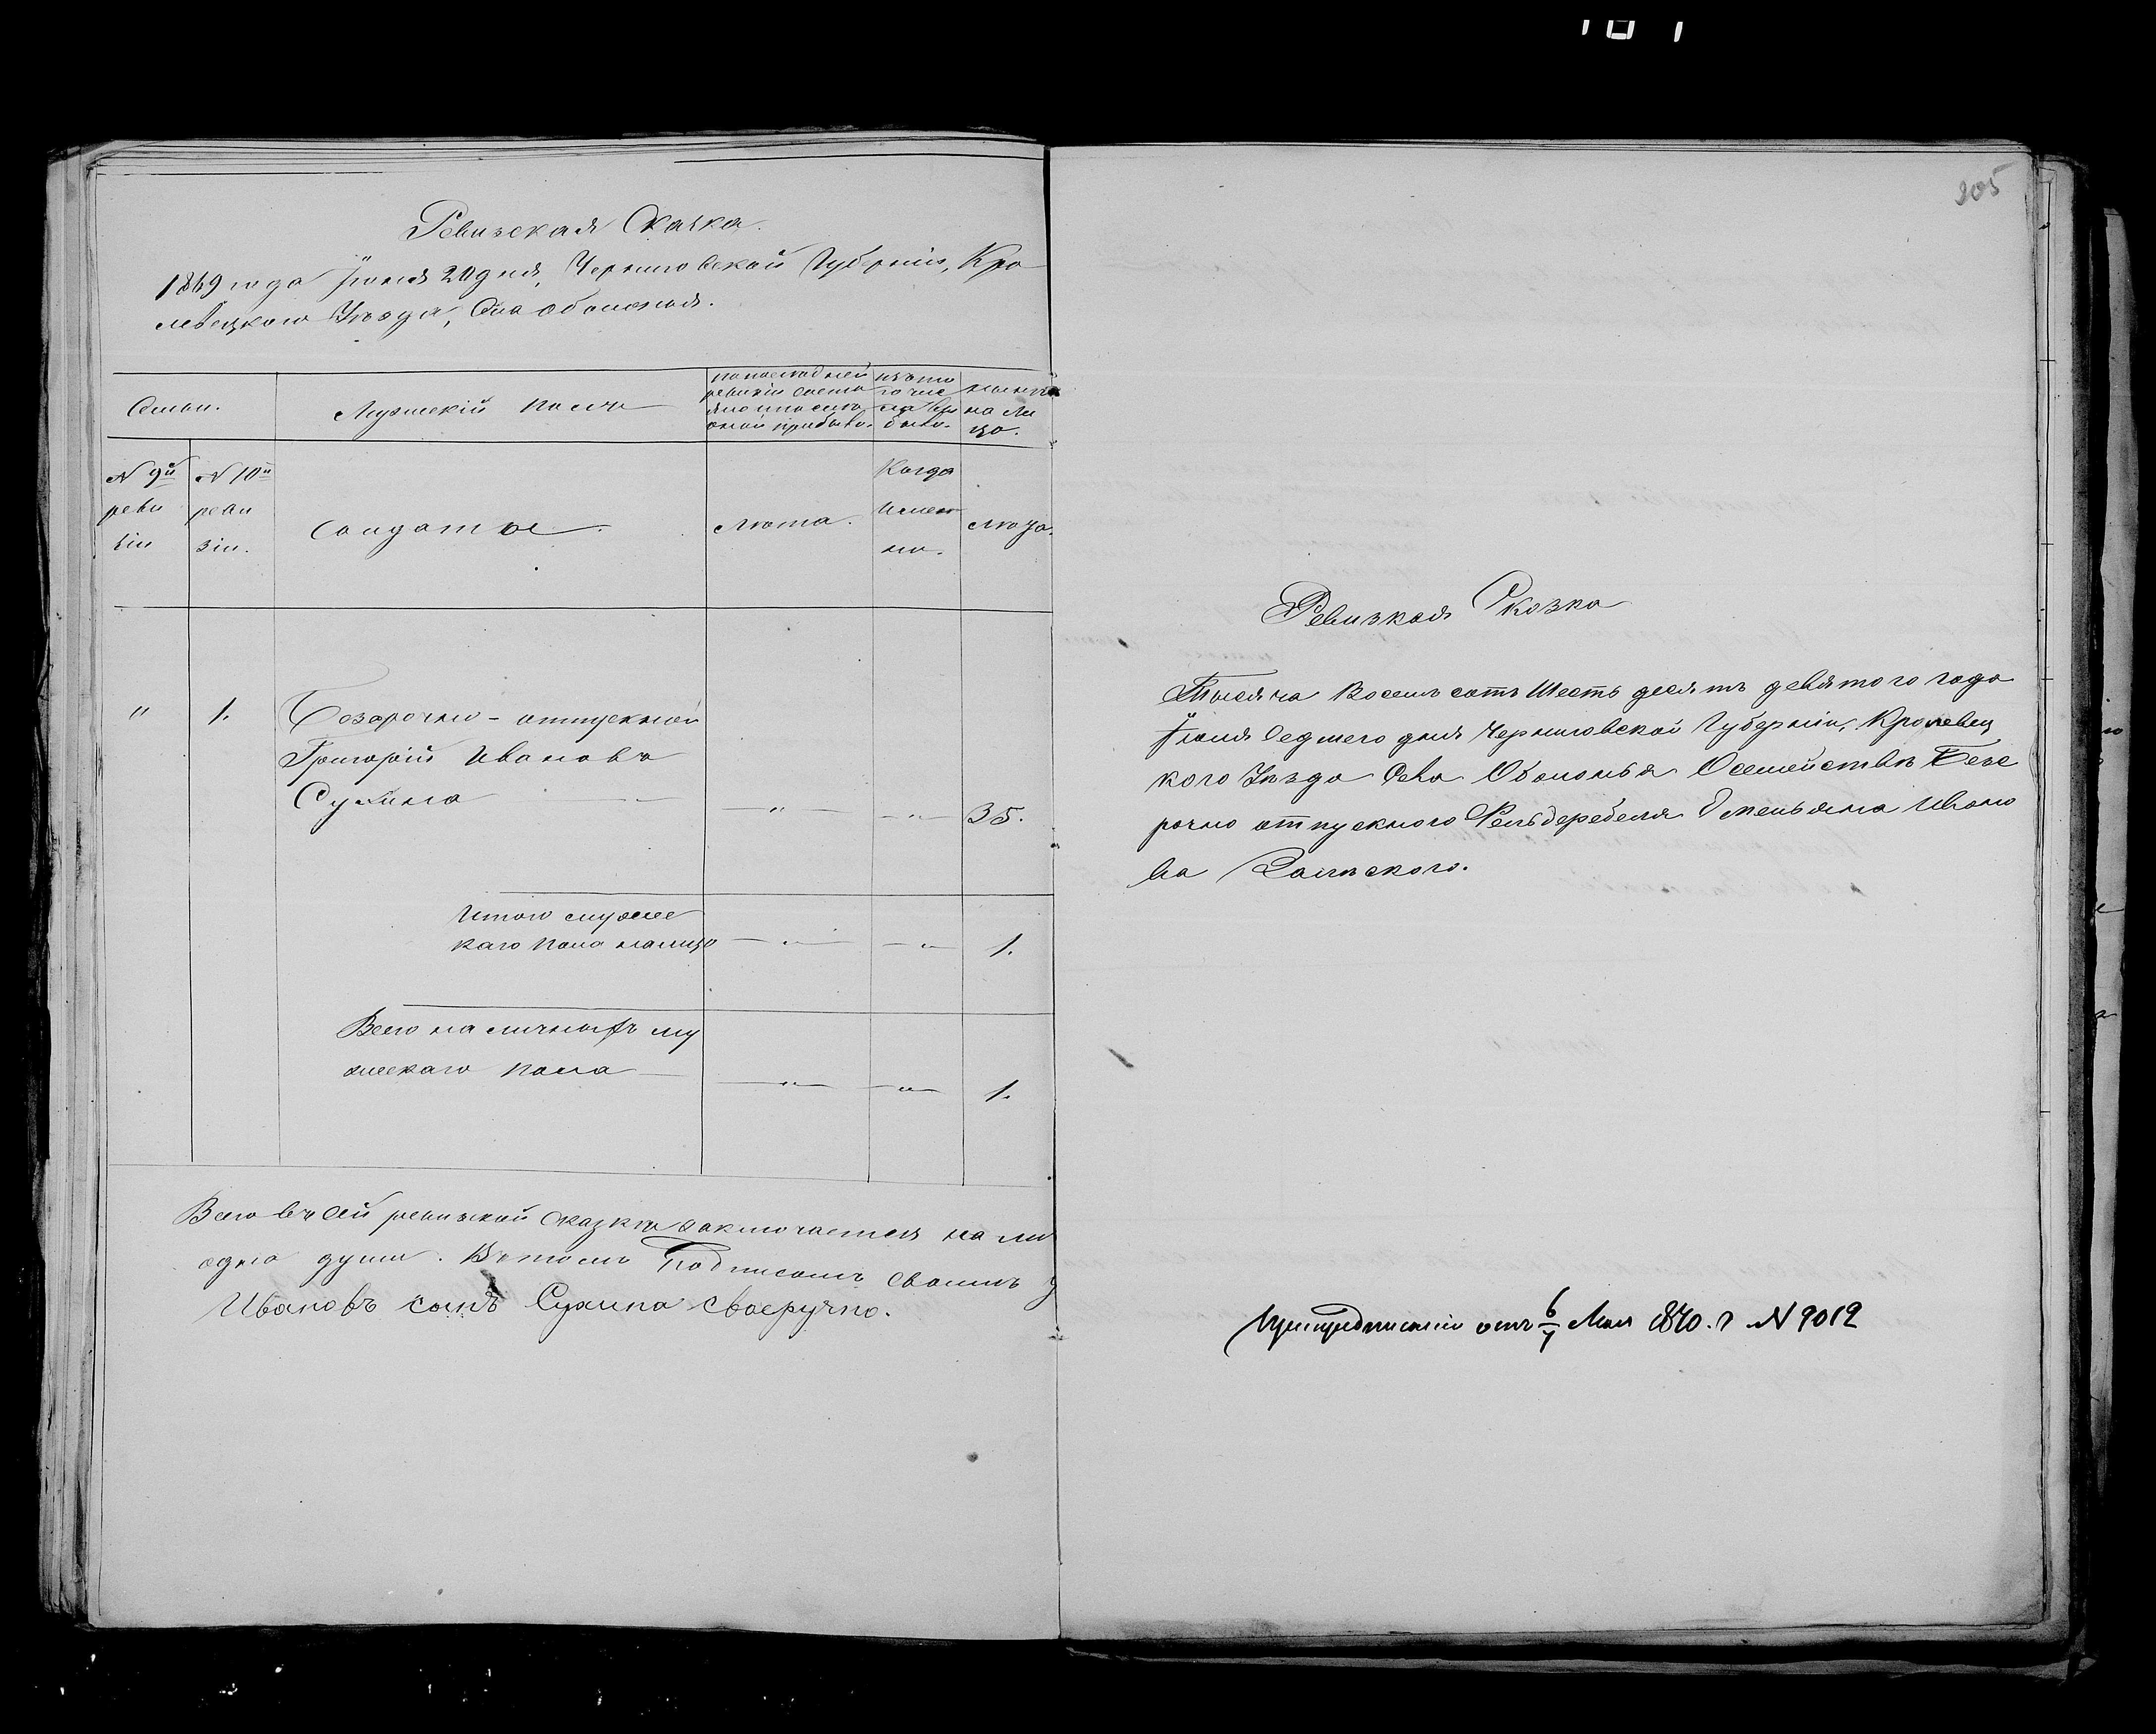 Ревизская Сказка.
1869 года Іюня 20 дня, Черниговской Губерніи, Кро
левецкаго Уѣзда, Села Оболонья.
Семьи.
Мужескій полъ
по последней
ревизіи состо
яло и после
оной прибыло.
изъ то
го чис
ла вы
было.
нынѣ
на ли
цо.
N 9й
реви
зіи
N 10й
реви
зіи.
Солдаты.
лѣта.
Когда
имен
но.
лѣта.
"
1.
Безсрочно-отпускной
Григорій Ивановъ
Сухина
"
"
35.
Итого мужес
каго пола налицо
"
"
1.
Всего наличныхъ му
жескаго пола
"
"
1.
Всего въ сей ревизской сказкѣ заключается на ли
одна душа. Въ томъ Подписомъ своимъ у
Ивановъ сынъ Сухина своеручно.
205
Ревизкая Сказка
Тысяча Восемъ сотъ Шесть десятъ девятого года
Іюня Седмого дня Черниговской Губерніи, Кролевец
кого Уѣзда Села Оболонья О семействѣ Безс
рочно отпускного Фельдфебеля Омельяна Ивано
ва
При предписаніи отъ 6/7 Мая 1870. г N 9012